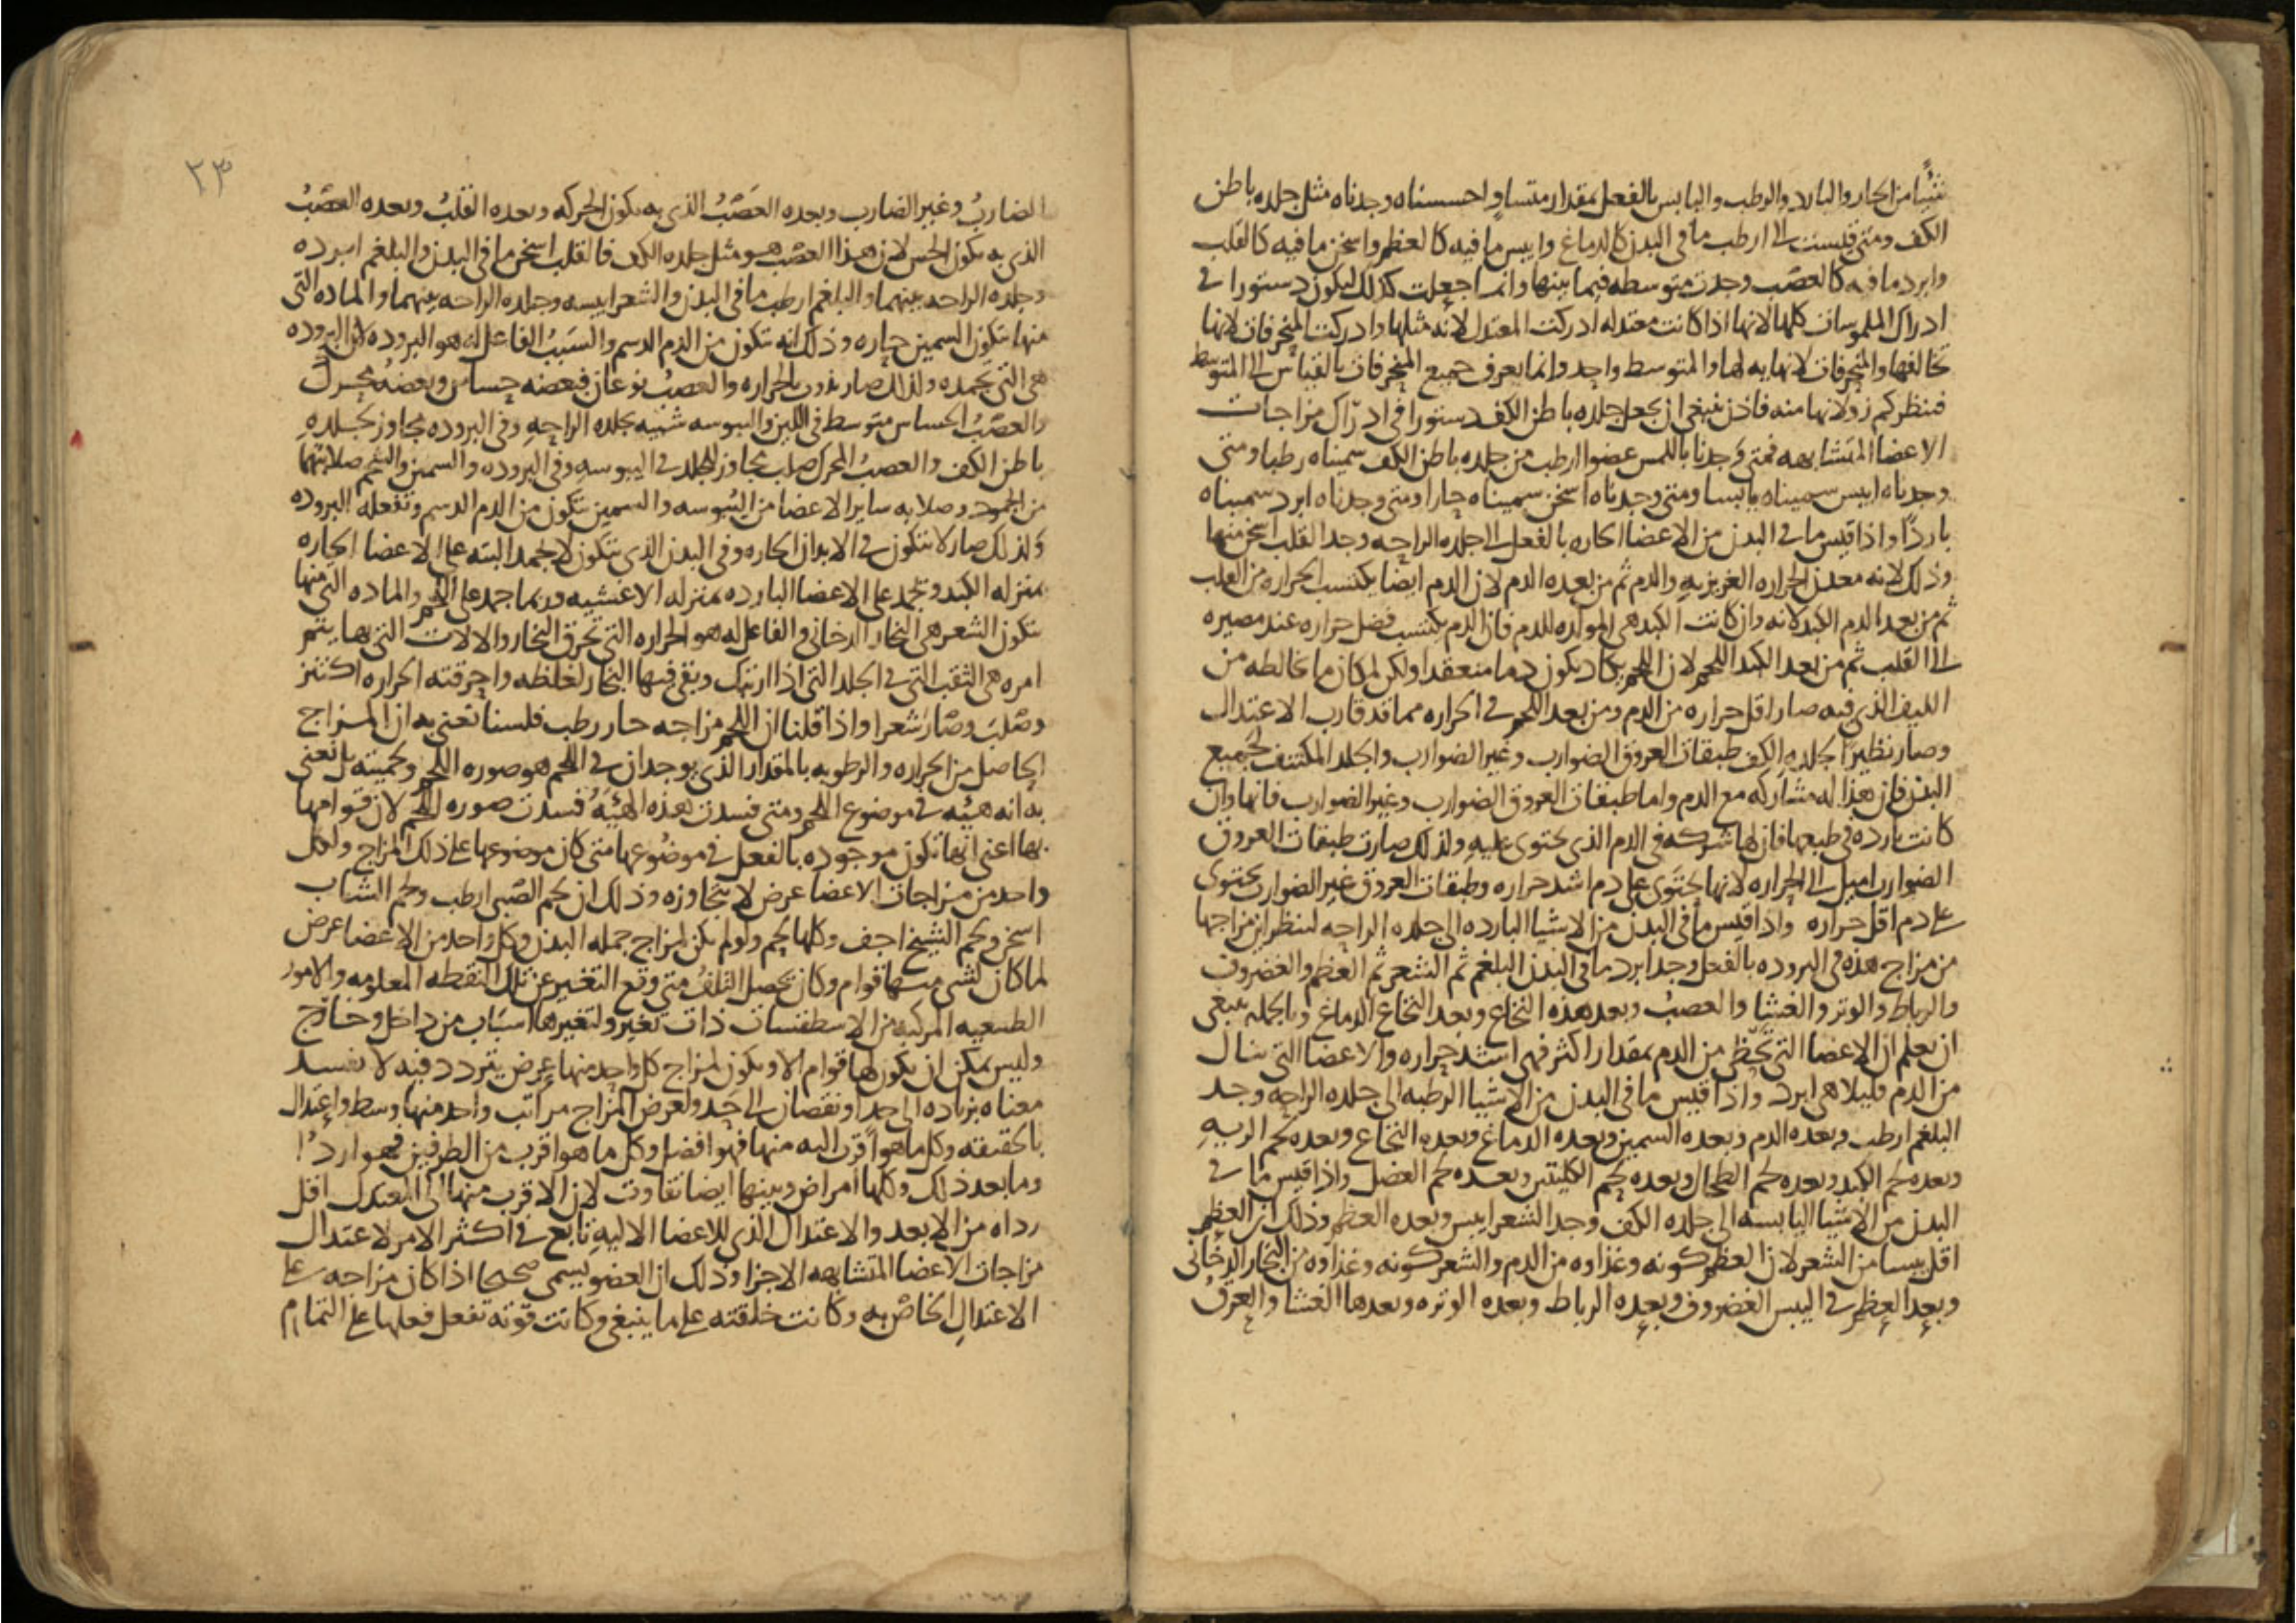 شيًا من الحار والبارد والرطب واليابس بالفعل بمقدار متساوٍ احسسناه وجدناه مثل جلده باطن
الكف ومتى قيست الى ارطب ما في البدن كالدماغ وايبس ما فيه كالعظم واسخن ما فيه كالقلب
وابرد ما فيه كالعصب وجدت متوسطه فيما بينها وانما جعلت كذلك ليكون دستورا في
ادراك الملموسات كلها لانها اذا كانت معتدله ادركت المعتدل لانه مثلها وادركت المنحرفات لانها
تخالفها والمنحرفات لا نهايه لها والمتوسط واحد وانما يعرف جميع المنحرفات بالقياس الى المتوسط
فننظر كم زولانها منه فاذن ينبغي ان يجعل جلده باطن الكف دستورا في ادراك مزاجات
الاعضا المتشابهه فمتى وجدنا باللمس عضوا ارطب من جلده باطن الكف سميناه رطبا ومتى
وجدناه ايبس سميناه يابسا ومتى وجدناه اسخن سميناه حارا ومتى وجدناه ابرد سميناه
باردًا واذا قيس ما في البدن من الاعضا الحاره بالفعل الى جلده الراحه وجد القلب اسخن منها
وذلك لانه معدن الحراره الغريزيه والدم ثم من بعده الدم لان الدم ايضا يكتسب الحراره من القلب
ثم من بعد الدم الكبد لانه وان كانت الكبد هي المولده للدم فان الدم يكتسب فضل حراره عند مصيره
الى القلب ثم من بعد الكبد اللحم لان اللحم يكاد يكون دما منعقدا ولكن لمكان ما خالطه من
الليف الذي فيه صار اقل حراره من الدم ومن بعد اللحم في الحراره مما قد قارب الاعتدال
وصار نظيرًا لجلده الكف طبقات العروق الضوارب وغير الضوارب والجلد المكتنف لجميع
البدن فان هذا له مشاركه مع الدم واما طبقات العروق الضوارب وغير الضوارب فانها وان
كانت بارده في طبعها فان لها شركه في الدم الذي يحتوي عليه ولذلك صارت طبقات العروق
الضوارب اميل الى الحراره لانها تحتوي على دم اشد حراره وطبقات العروق غير الضوارب تحتوي
على دم اقل حراره واذا قيس ما في البدن من الاشيا البارده الى جلده الراحه لننظر اين مزاجها
من مزاج هذه في البروده بالفعل وجد ابرد ما في البدن البلغم ثم الشعر ثم العظم والغضروف
والرباط والوتر والغشا والعصبُ وبعد هذه النخاع وبعد النخاع الدماغ وبالجمله ينبغي
ان يعلم ان الاعضا التي تحظى من الدم بمقدار اكثر فهي اشد حراره والاعضا التي تنال
من الدم قليلا هي ابرد واذا قيس ما في البدن من الاشيا الرطبه الى جلده الراحه وجد
البلغم ارطب وبعده الدم وبعده السمين وبعده الدماغ وبعده النخاع وبعده لحم الريه
وبعده لحم الكبد وبعده لحم الطحال وبعده لحم الكليتين وبعده لحم العضل واذا قيس ما في
البدن من الاشيا اليابسه الى جلده الكف وجد الشعر ايبس وبعده العظم وذلك ان العظم
اقل يبسا من الشعر لان العظم كونه وغذاوه من الدم والشعر كونه وغذاوه من البخار الدخاني
وبعد العظم في اليبس الغضروف وبعده الرباط وبعده الوتره وبعدها الغشا والعرقُ
٢٣
الضاربُ وغير الضارب وبعده العصبُ الذي به يكون الحركه وبعده القلبُ وبعده العصبُ
الذي به يكون الحس لان هذا العصب هو مثل جلده الكف فالقلب اسخن ما في البدن والبلغم ابرده
وجلده الراحه بينهما والبلغم ارطب ما في البدن والشعر ايبسه وجلده الراحه بينهما والماده التي
منها يتكون السمين حاره وذلك انه يتكون من الدم الدسم والسبب الفاعل له هو البروده لان البروده
هي التي تجمده ولذلك صار يذوب بالحراره والعصبُ نوعان فبعضه حساس وبعضه محرك
والعصبُ الحساس متوسط في اللين واليبوسه شبيه بجلده الراحه وفي البروده مجاوز لجلده
باطن الكف والعصبُ المحرك صلب مجاوز للجلد في اليبوسه وفي البروده والسمين والشحم صلابتهما
من الجمود وصلابه ساير الاعضا من اليبوسه والسمين يتكون من الدم الدسم وتفعله البروده
ولذلك صار لا يتكون في الابدان الحاره وفي البدن الذي يتكون لا يجمد البته على الاعضا الحاره
بمنزله الكبد ويجمد على الاعضا البارده بمنزله الاغشيه وربما جمد على اللحم والماده التي منها
يتكون الشعر هي البخار الدخاني والفاعل له هو الحراره التي تحرق البخار والالات التي بها يتم
امره هي الثقب التي في الجلد التي اذا ارتبك وبقي فيها البخار لغلظه واحرقته الحراره اكتنز
وصلب وصار شعرا واذا قلنا ان اللحم مزاجه حار رطب فلسنا نعني به ان المزاج
الحاصل من الحراره والرطوبه بالمقدار الذي يوجدان في اللحم هو صوره اللحم ولحميته بل نعني
به انه هيئه في موضوع اللحم ومتى فسدت هذه الهيئهُ فسدت صوره اللحم لان قوامها
بها اعني انها تكون موجوده بالفعل في موضوعها متى كان موضوعها على ذلك المزاج ولكل
واحد من مزاجات الاعضا عرض لا يتجاوزه وذلك ان لحم الصبي ارطب ولحم الشاب
اسخن ولحم الشيخ اجف وكلها لحم ولو لم يكن لمزاج جمله البدن وكل واحد من الاعضا عرض
لما كان لشي منها قوام وكان يحصل التلف متى وقع التغير عن تلك النقطه المعلومه والامور
الطبيعيه المركبه من الاسطقسات ذات تغير ولتغيرها اسباب من داخل وخارج
وليس يمكن ان يكون لها قوام الا ويكون لمزاج كل واحد منها عرض يتردد فيه لا يفسد
معناه بزياده الى حد او نقصان الى حد ولعرض المزاج مراتب واحد منها وسط واعتدال
بالحقيقه وكل ما هو اقرب اليه منها فهو افضل وكل ما هو اقرب من الطرفين فهو اردا
وما بعد ذلك وكلها امراض وبينها ايضا تفاوت لان الاقرب منها الى المعتدل اقل
رداه من الابعد والاعتدال الذي للاعضا الاليه تابع في اكثر الامر لاعتدال
مزاجات الاعضا المتشابهه الاجزا وذلك ان العضو يسمى صحيحا اذا كان مزاجه على
الاعتدالِ الخاص به وكانت خلقته على ما ينبغي وكانت قوته تفعل فعلها على التمام